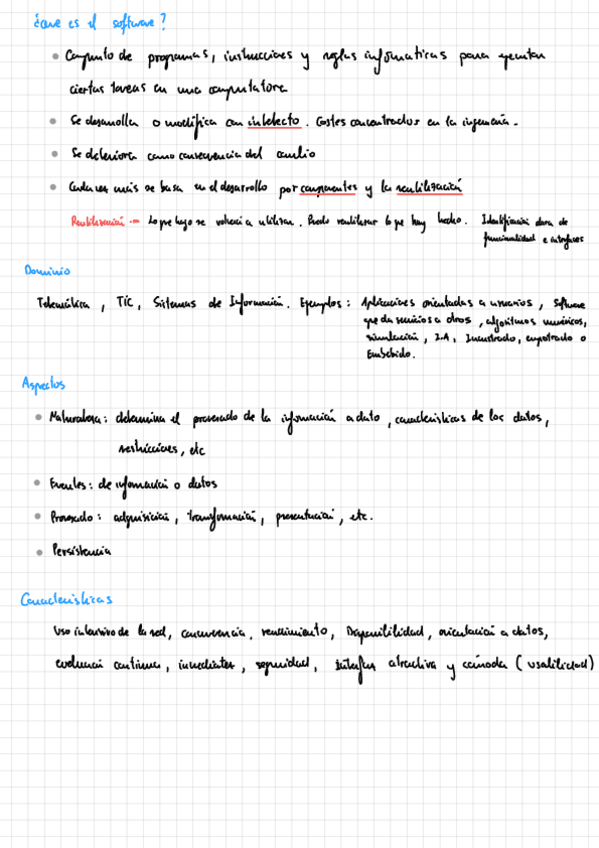 ¿Que es el software?
Conjunto de programas, instrucciones y reglas informaticas para ejecutar
ciertas tareas en una computadora
Se desarrolla o modifica con intelecto. Costes concentrados en la ingeniería.
Se deteriora como consecuencia del cambio
Cada vez más se basa en el desarrollo por componentes y la reutilización
Reutilización → Lo que hago se volverá a utilizar. Puedo reutilizar lo que hay hecho. Identificación clara de
funcionalidad e interfaces
Dominio
Telemática, TIC, Sistemas de Información. Ejemplos: Aplicaciones orientadas a usuarios, Software
que da servicios a otros, algoritmos numéricos,
simulación, I.A, Incrustado, empotrado o
Embebido.
Aspectos
Naturaleza: determina el procesado de la información a dato, características de los datos,
restricciones, etc
Fuentes: de información o datos
Procesado: adquisición, transformación, presentación, etc.
Persistencia
Características
Uso intensivo de la red, concurrencia, rendimiento, Disponibilidad, orientación a datos,
evolución continua, inmediatez, seguridad, interfaz atractiva y cómoda (usabilidad)